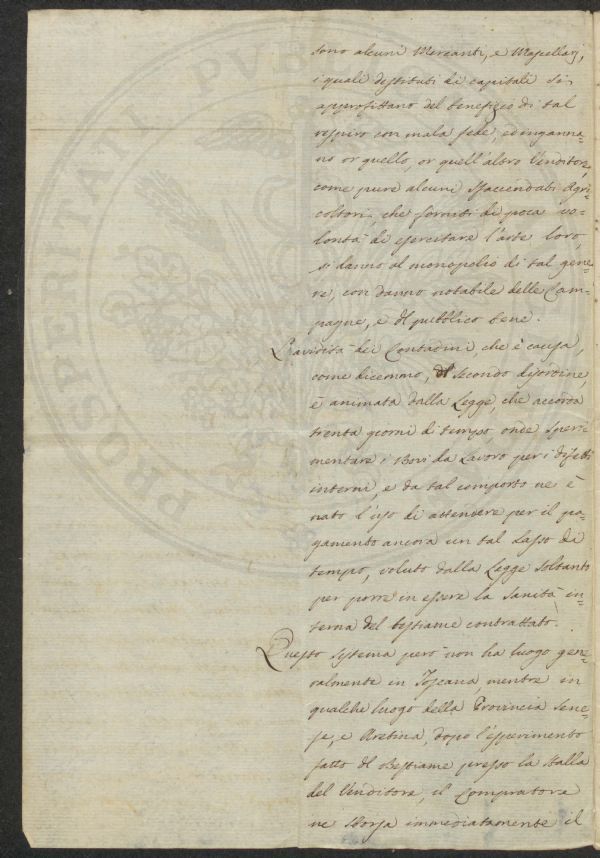 sono alcuni Mercanti, e Macellarj,
i quali destituti di capitali si
approfittano del benefizio di tal
respiro con mala fede, ed inganna-
no or quello, or quell'altro Venditore,
come pure alcuni sfaccendati Agri-
coltori, che forniti di poca vo=
lontà di esercitare l'arte loro,
si danno al monopolio di tal gene=
re, con danno notabile delle Cam=
pagne, e del pubblico bene.
L'avidità dei Contadini, che è causa,
come dicemmo, del secondo disordine,
è animata dalla Legge, che accorda
trenta giorni di tempo, onde speri=
mentare i Bovi da Lavoro per i difetti
interni, e da tal comporto ne è
nato l'uso di attendere per il pa=
gamento ancora un tal Lasso di
tempo, voluto dalla Legge soltanto
per porre in essere la sanità in=
terna del bestiame contrattato.
Questo sistema però non ha luogo gene=
ralmente in Toscana, mentre in
qualche luogo della Provincia Sene=
se, e Aretina, dopo l'esperimento
fatto del Bestiame presso la stalla
del Venditore, il Compratore
ne sborsa immediatamente il
PROSPERI ATI PVB